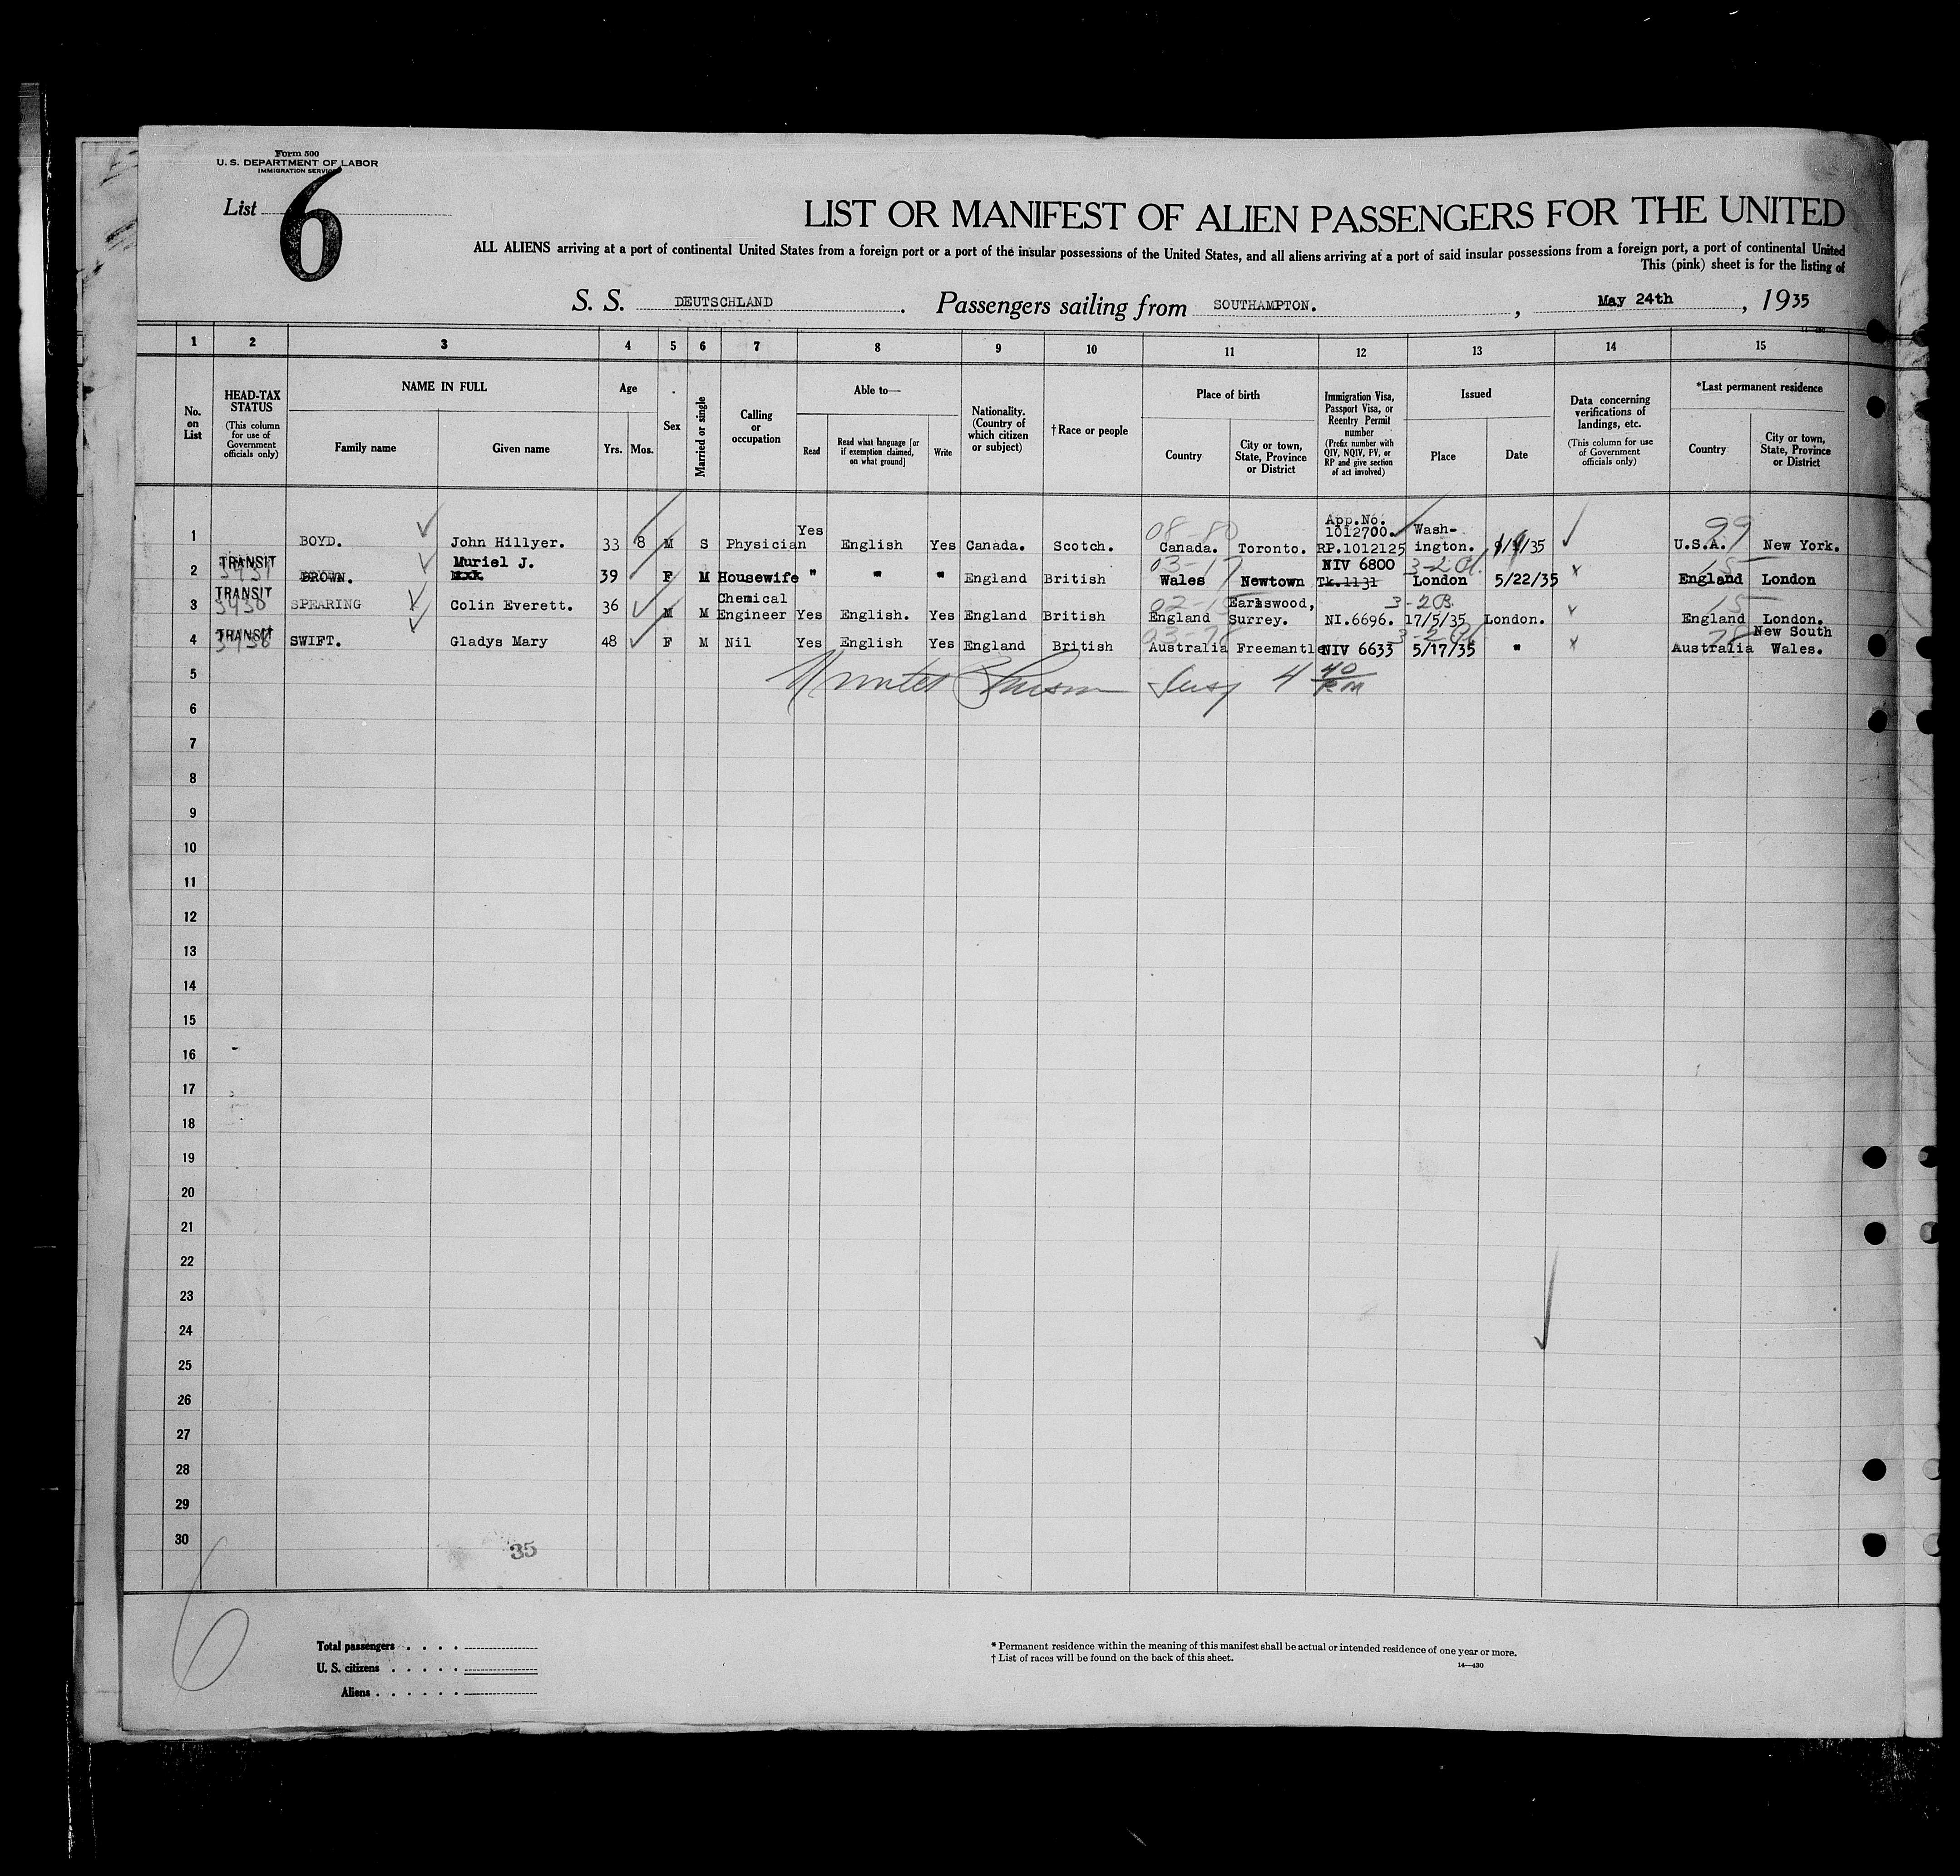 Form 500
U. S. DEPARTMENT OF LABOR
IMMIGRATION SERVICE
List 6
LIST OR MANIFEST OF ALIEN PASSENGERS FOR THE UNITED
ALL ALIENS arriving at a port of continental United States from a foreign port or a port of the insular possessions of the United States, and all aliens arriving at a port of said insular possessions from a foreign port, a port of continental United
This (pink) sheet is for the listing of
S. S. DEUTSCHLAND. Passengers sailing from SOUTHAMPTON., May 24th, 1935
1 2 3 4 5 6 7 8 9 10 11 12 13 14 15
No. on List
HEAD-TAX STATUS (This column for use of Government officials only)
NAME IN FULL
Family name Given name
Age
Yrs. Mos.
Sex
Married or single
Calling or occupation
Able to—
Read
Read what language [or if exemption claimed, on what ground]
Write
Nationality. (Country of which citizen or subject)
†Race or people
Place of birth
Country
City or town, State, Province or District
Immigration Visa, Passport Visa, or Reentry Permit number (Prefix number with QIV, NQIV, PV, or RP and give section of act involved)
Issued
Place Date
Data concerning verifications of landings, etc. (This column for use of Government officials only)
*Last permanent residence
Country
City or town, State, Province or District
1 BOYD. John Hillyer. 33 8 M S Physician Yes English Yes Canada. Scotch. 08-80 Canada. Toronto. App.No. 1012700. RP.1012125 Washington. /35 99 U.S.A. New York.
2 TRANSIT BROWN. Muriel J. 39 F M Housewife " " " England British 03-17 Wales Newtown NIV 6800 Tk.1131 3-2 London 5/22/35 15 England London
3 TRANSIT SPEARING Colin Everett. 36 M M Chemical Engineer Yes English. Yes England British 02-15 England Earlswood, Surrey. NI.6696. 3-2B 17/5/35 London. 15 England London.
4 TRANSIT SWIFT. Gladys Mary 48 F M Nil Yes English Yes England British 03-78 Australia Freemantle NIV 6633 3-2 5/17/35 " 78 Australia New South Wales.
5
6
7
8
9
10
11
12
13
14
15
16
17
18
19
20
21
22
23
24
25
26
27
28
29
30
35
6
Total passengers
U. S. citizens
Aliens
* Permanent residence within the meaning of this manifest shall be actual or intended residence of one year or more.
† List of races will be found on the back of this sheet.
14—430